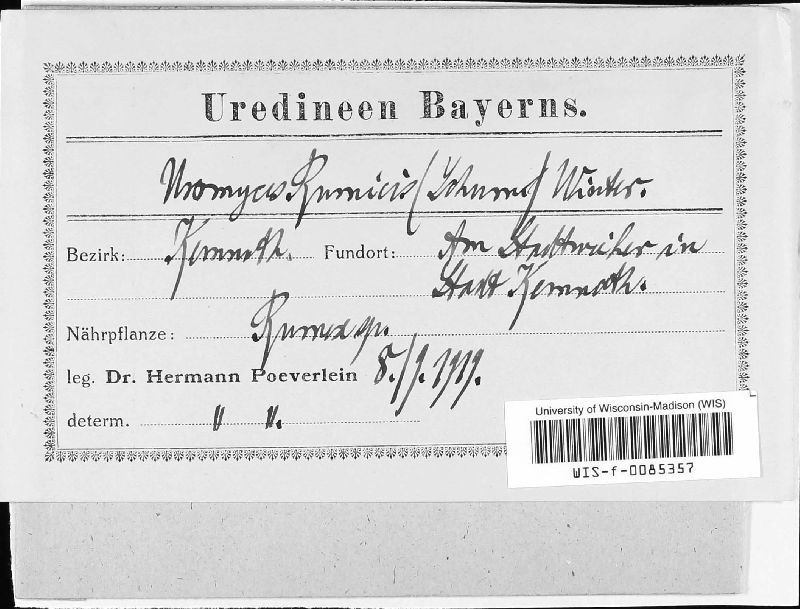 Uredineen Bayerns.
Uromyces Rumicis (Schum) Winter.
Bezirk: Kemnath. Fundort: Am Stadtweiher in
Stadt Kemnath.
Nährpflanze: Rumex sp.
leg. Dr. Hermann Poeverlein 8./9. 1919.
determ. " ".
University of Wisconsin-Madison (WIS)
WIS-f-0085357